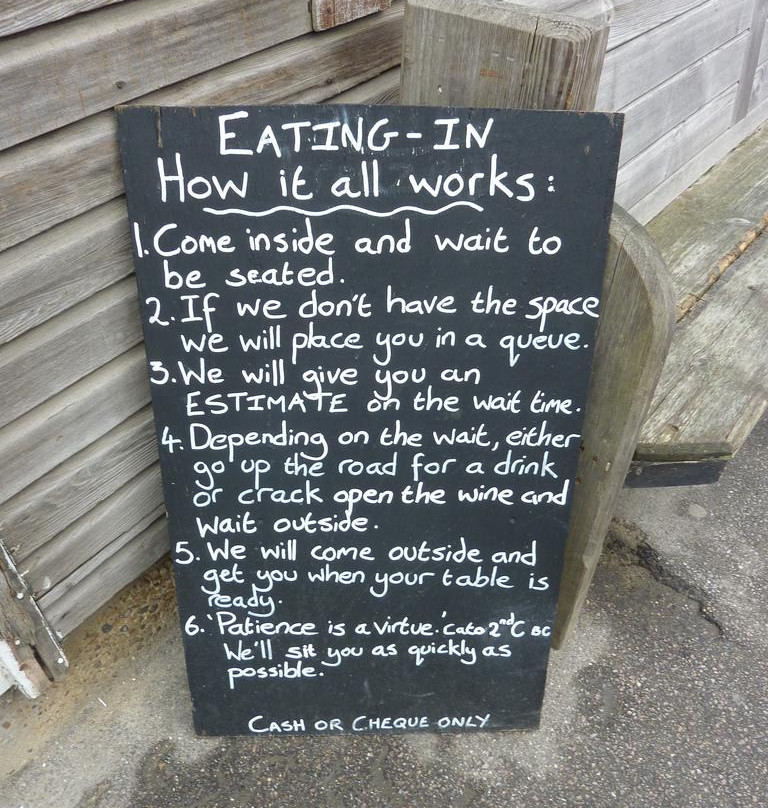 EATING-IN
How it all works:
1. Come inside and wait to
be seated.
2. If we don't have the space
we will place you in a queue.
3. We will give you an
ESTIMATE on the wait time.
4. Depending on the wait, either
go up the road for a drink
or crack open the wine and
wait outside.
5. We will come outside and
get you when your table is
ready.
6. 'Patience is a virtue.' Cato 2nd C BC
We'll sit you as quickly as
possible.
CASH OR CHEQUE ONLY